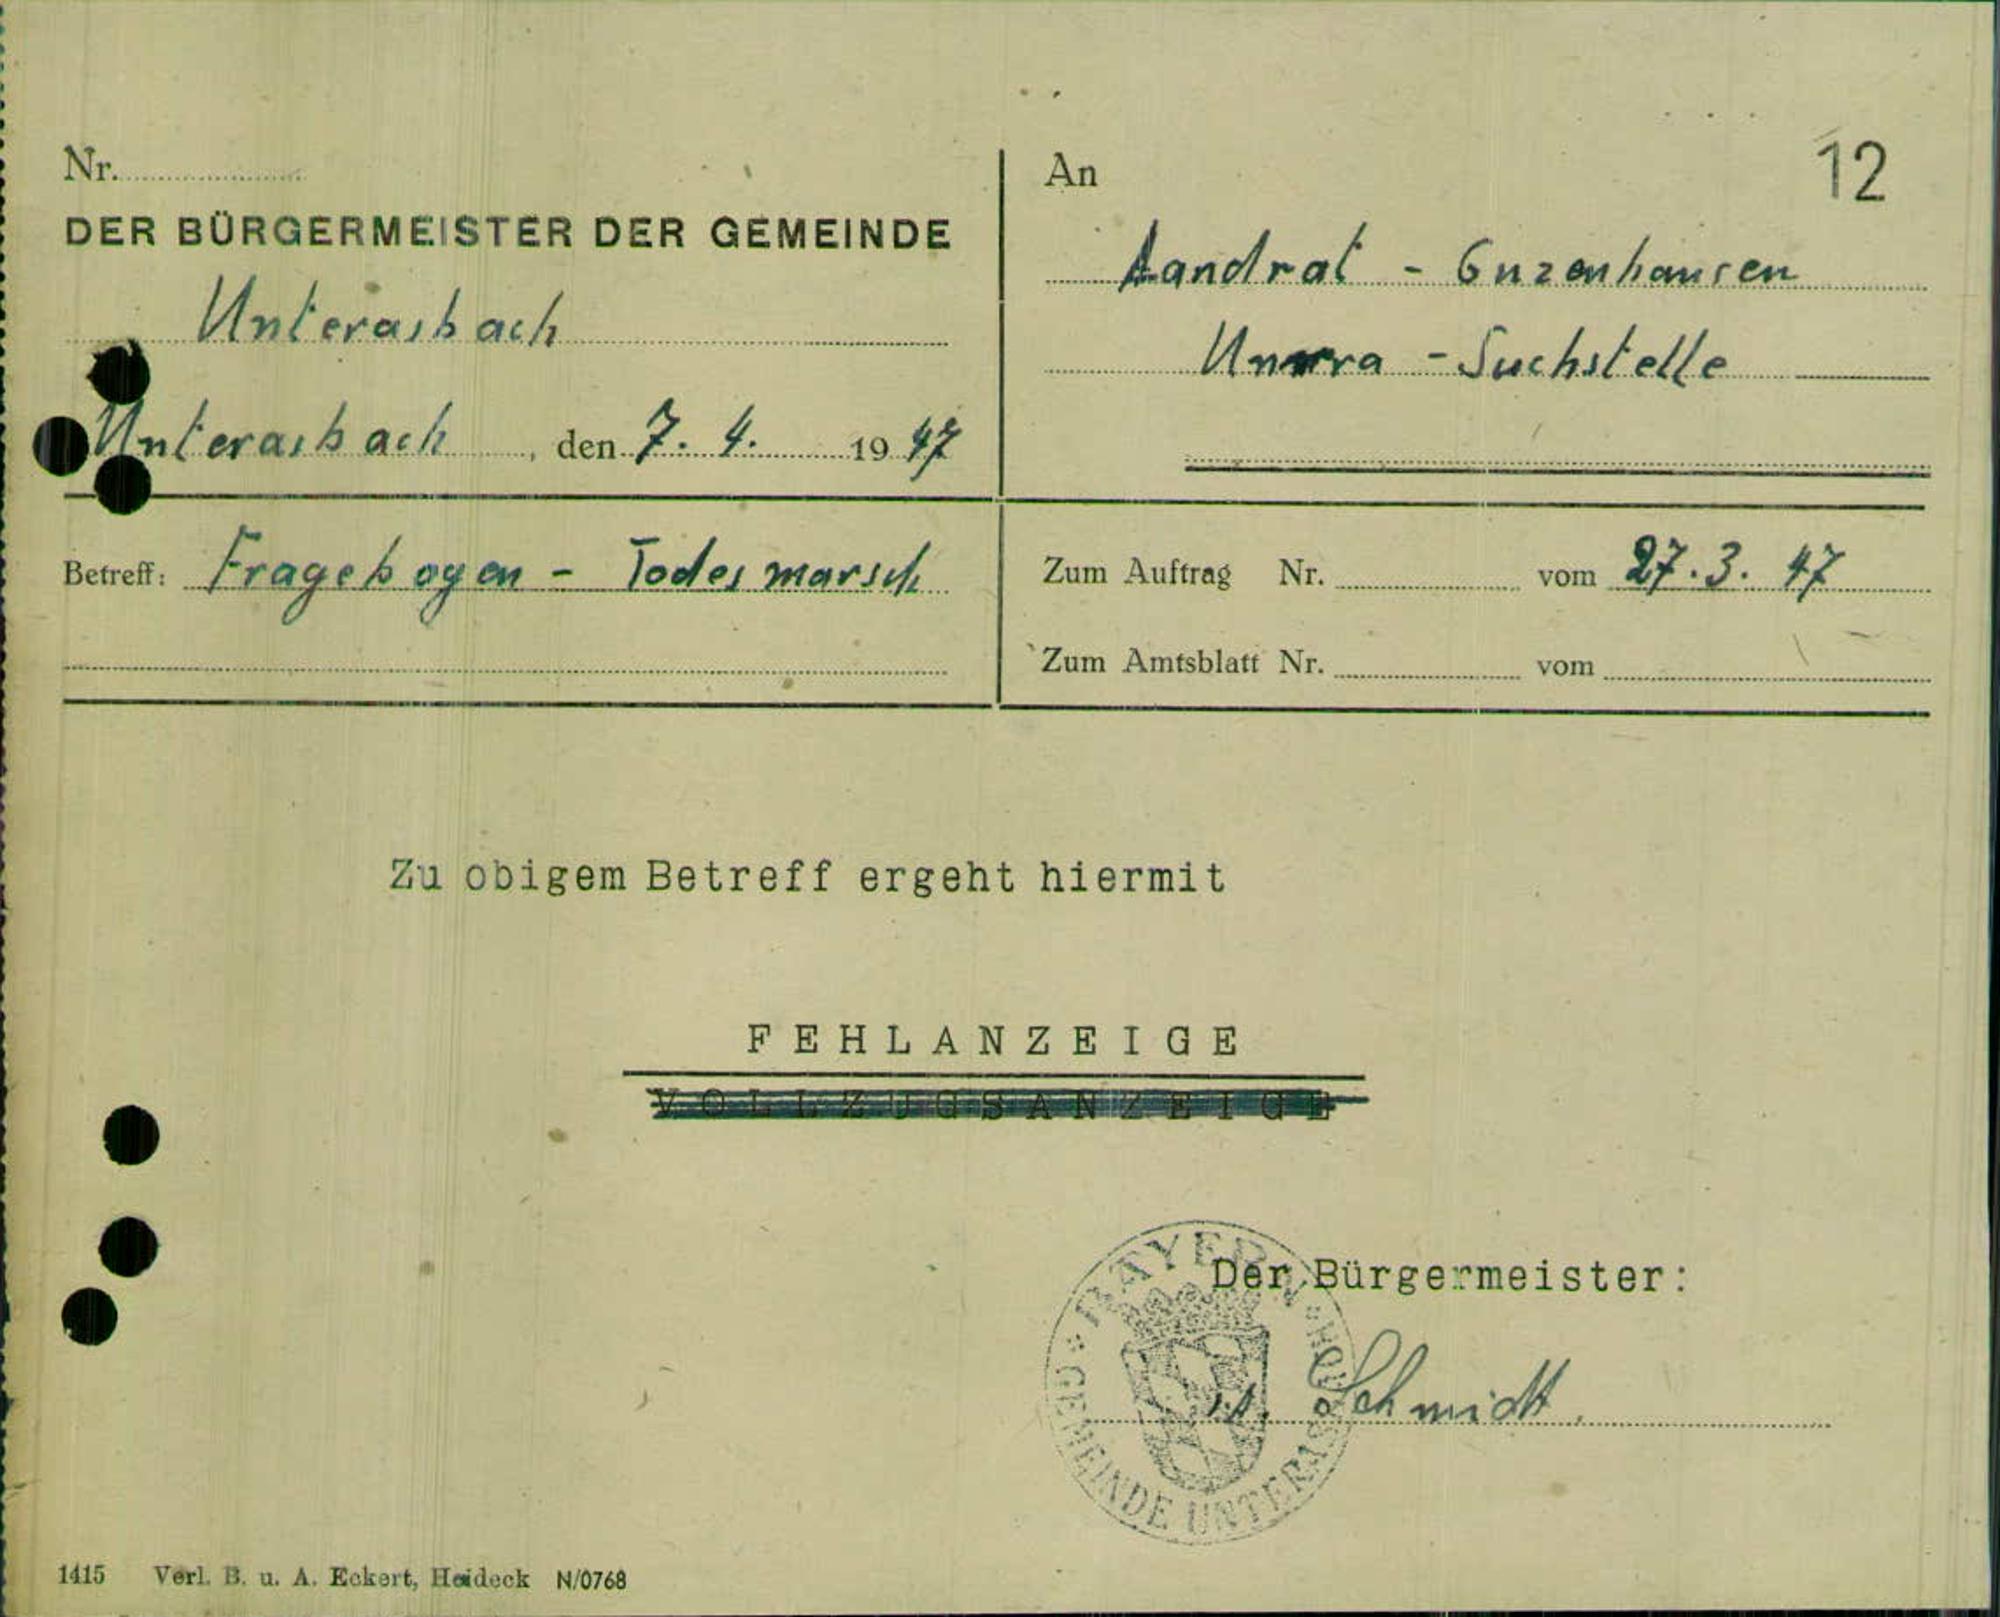 Nr.
DER BÜRGERMEISTER DER GEMEINDE
Unterasbach
Unterasbach, den 7. 4. 1947
An
12
Landrat - Gunzenhausen
Unrra - Suchstelle
Betreff: Fragebogen - Todesmarsch
Zum Auftrag Nr. vom 27. 3. 47
Zum Amtsblatt Nr. vom
Zu obigem Betreff ergeht hiermit
FEHLANZEIGE
VOLLZUGSANZEIGE
Der Bürgermeister:
Schmidt.
BAYERN
GEMEINDE UNTERASBACH
1415 Verl. B. u. A. Eckert, Heideck N/0768